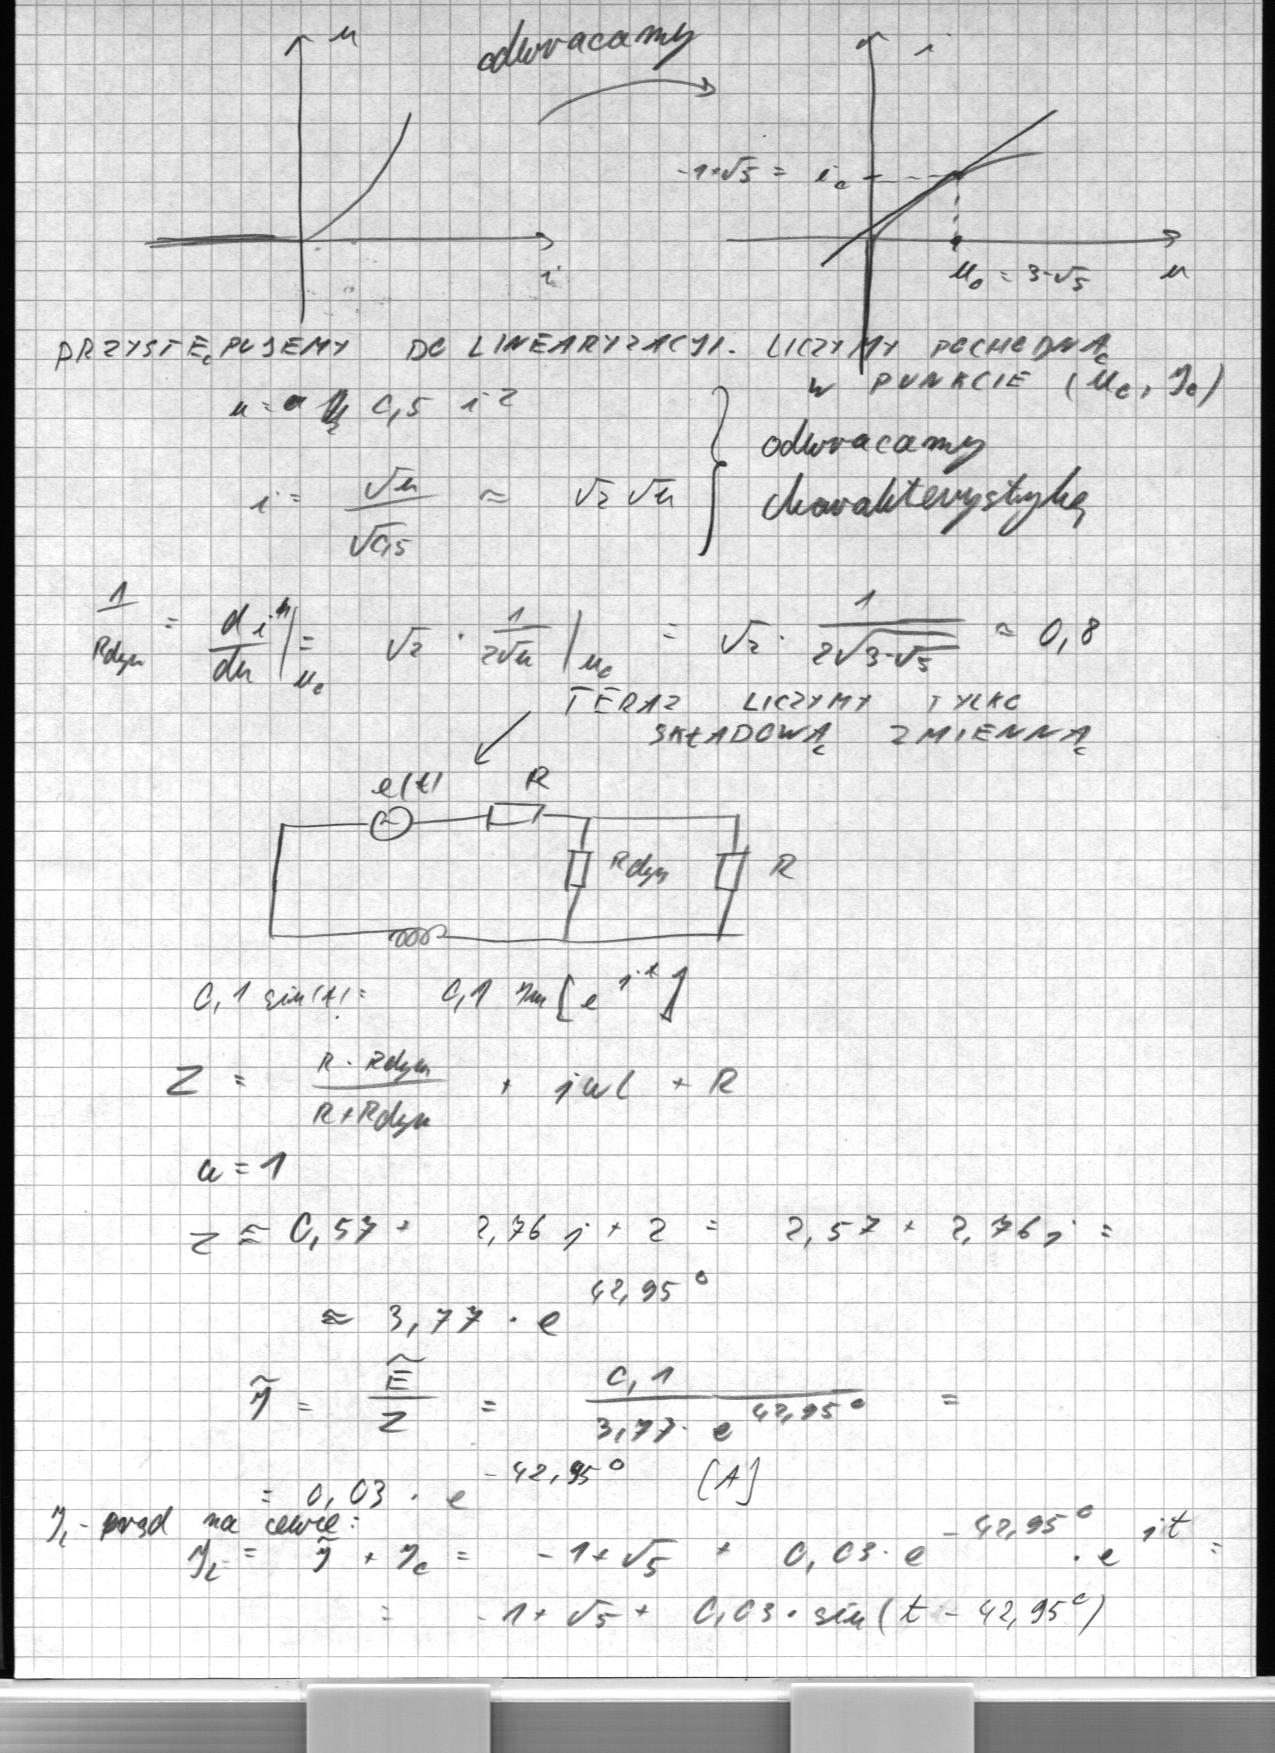 u
odwracamy
i
-1+√5 = i₀
i
u₀ = 3-√5
u
PRZYSTĘPUJEMY DO LINEARYZACJI. LICZYMY POCHODNĄ
W PUNKCIE (U₀, I₀)
u = 0,5 i²
odwracamy
i = √u / √0,5 ≈ √2 √u
charakterystykę
1/Rdyn = di/du |u₀ = √2 · 1/(2√u) |u₀ = √2 · 1/(2√(3-√5)) ≈ 0,8
TERAZ LICZYMY TYLKO
SKŁADOWĄ ZMIENNĄ
e(t) R
Rdyn R
0,1 sin(t) = 0,1 Im[e^(jt)]
Z = (R · Rdyn)/(R + Rdyn) + jωL + R
ω = 1
Z ≅ 0,57 + 2,76 j + 2 = 2,57 + 2,76 j =
≈ 3,77 · e^(42,95°)
Ĩ = Ẽ/Z = 0,1/(3,77 · e^(42,95°)) =
= 0,03 · e^(-42,95°) [A]
I_L - prąd na cewce:
I_L = Ĩ + I₀ = -1+√5 + 0,03 · e^(-42,95°) · e^(jt) =
= -1+√5 + 0,03 · sin(t - 42,95°)